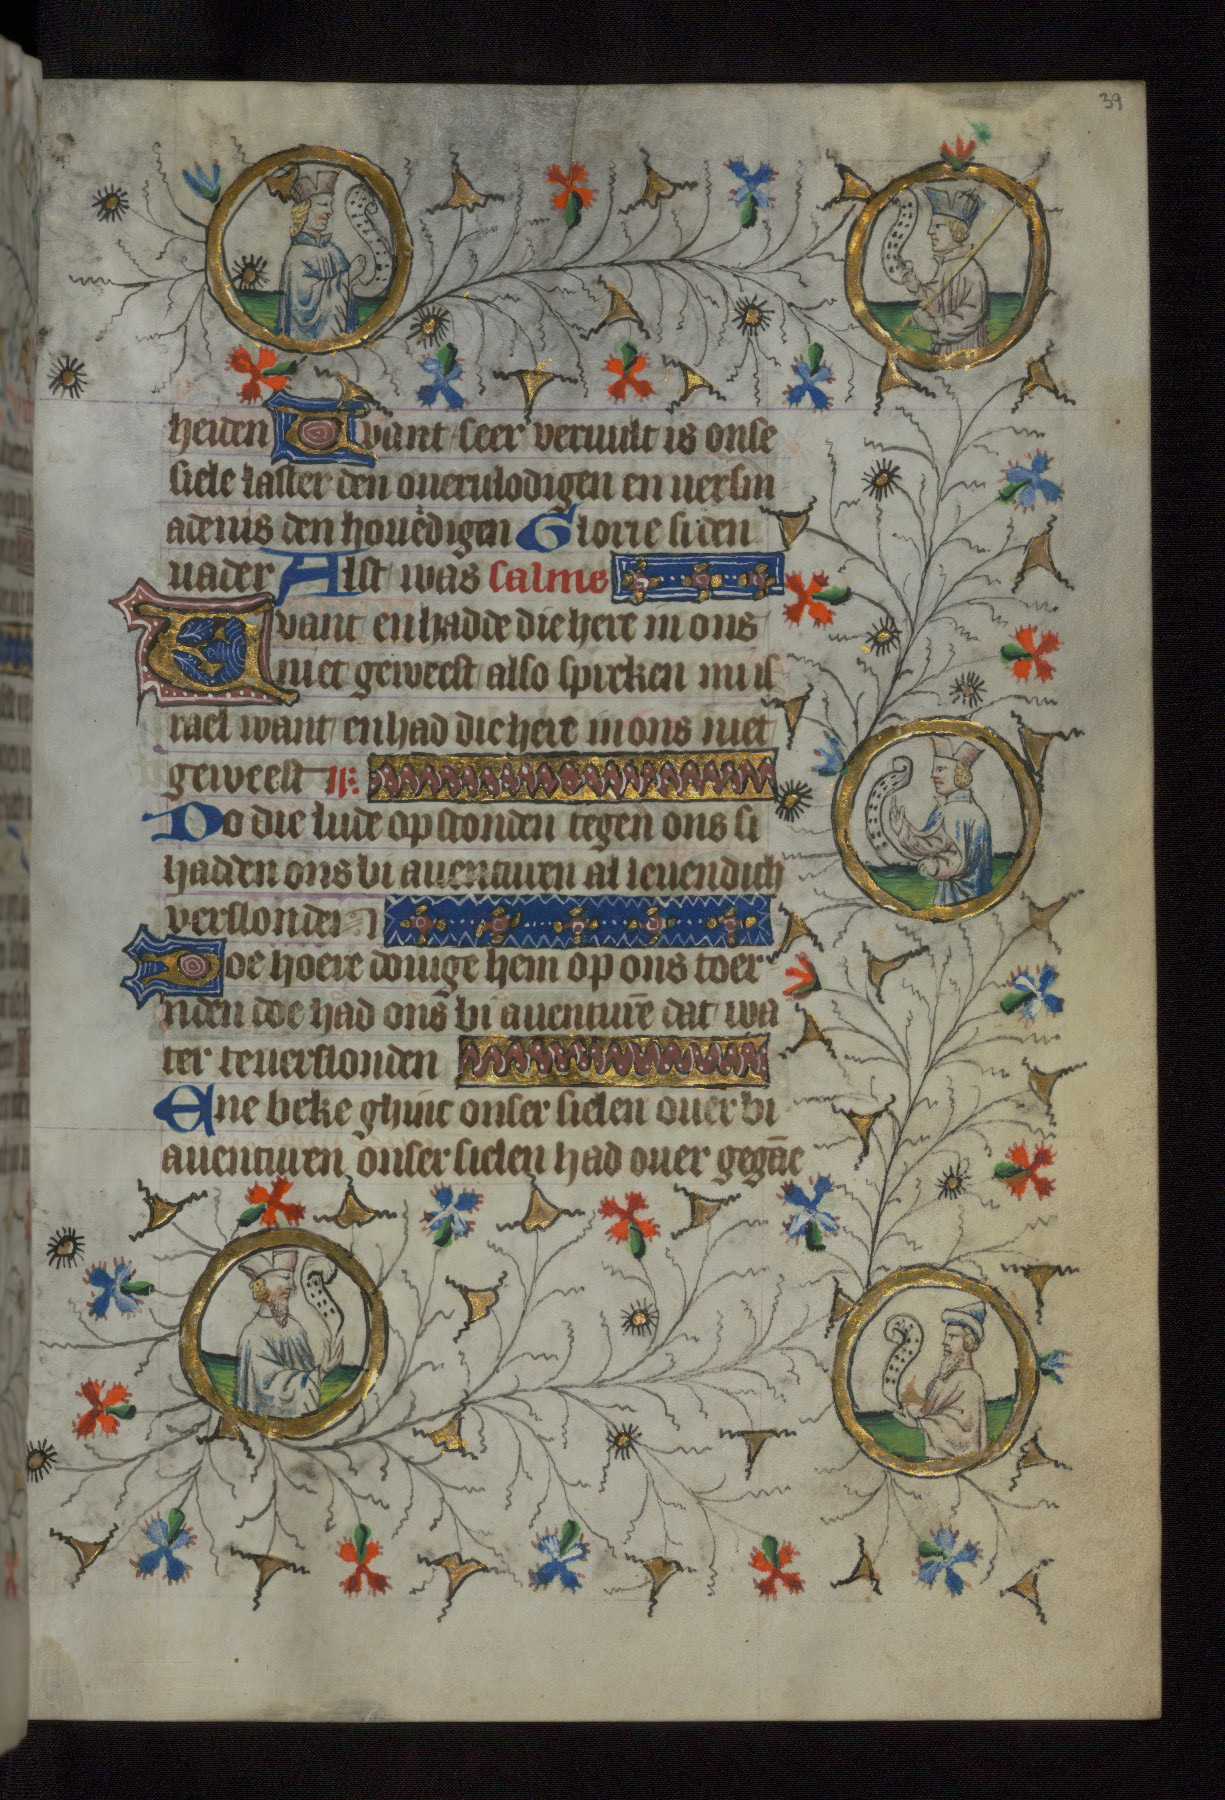 39
heiden want seer veruult is onse
siele laster den overulodigen en versm
adenis den houedigen Glorie si den
uader Alst was Salme
want en hadde die here in ons
niet geweest also spreken mi is
rael want en had die here in ons niet
geweest
Do die lude op stonden tegen ons si
hadden ons bi auenturen al leuendich
verslonden
Doe hoere douige hem op ons toer
nden doe had ons bi auenturē dat wa
ter teuerslonden
Ene beke ghinc onser sielen ouer bi
auenturen onser sielen had ouer gegāe